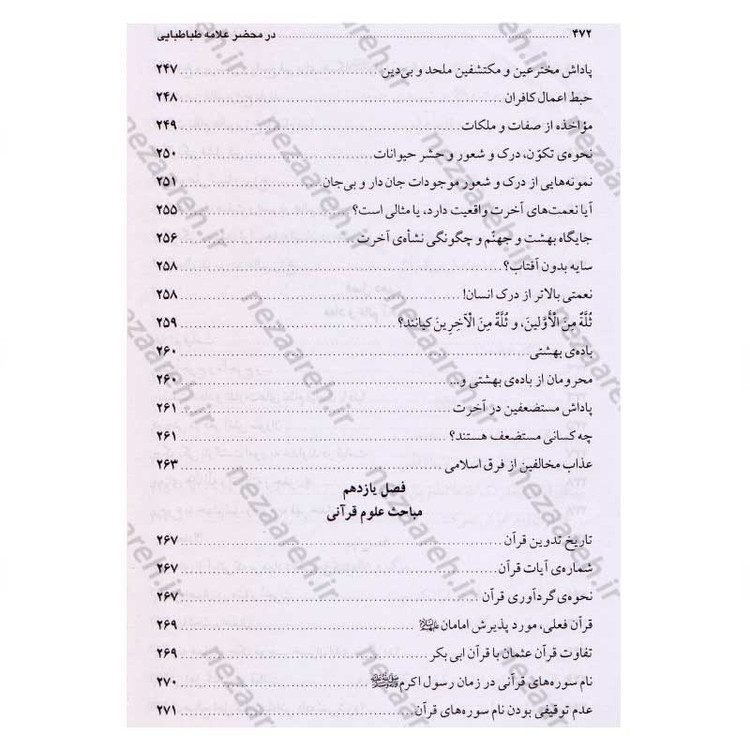 ۴۷۲ در محضر علامه طباطبایی
پاداش مخترعین و مکتشفین ملحد و بی‌دین ۲۴۷
حبط اعمال کافران ۲۴۸
مؤاخذه از صفات و ملکات ۲۴۹
نحوه‌ی تکوّن، درک و شعور و حشر حیوانات ۲۵۰
نمونه‌هایی از درک و شعور موجودات جان دار و بی‌جان ۲۵۱
آیا نعمت‌های آخرت واقعیت دارد، یا مثالی است؟ ۲۵۵
جایگاه بهشت و جهنّم و چگونگی نشأه‌ی آخرت ۲۵۶
سایه بدون آفتاب؟ ۲۵۸
نعمتی بالاتر از درک انسان! ۲۵۸
ثُلَّةٌ مِنَ الْأَوَّلِینَ، و ثُلَّةٌ مِنَ الْآخِرِینَ کیانند؟ ۲۵۹
باده‌ی بهشتی ۲۶۰
محرومان از باده‌ی بهشتی و... ۲۶۰
پاداش مستضعفین در آخرت ۲۶۱
چه کسانی مستضعف هستند؟ ۲۶۱
عذاب مخالفین از فرق اسلامی ۲۶۳
فصل یازدهم
مباحث علوم قرآنی
تاریخ تدوین قرآن ۲۶۷
شماره‌ی آیات قرآن ۲۶۷
نحوه‌ی گردآوری قرآن ۲۶۷
قرآن فعلی، مورد پذیرش امامان ۲۶۹
تفاوت قرآن عثمان با قرآن ابی بکر ۲۶۹
نام سوره‌های قرآنی در زمان رسول اکرم ﷺ ۲۷۰
عدم توقیفی بودن نام سوره‌های قرآن ۲۷۱
nezaareh.ir